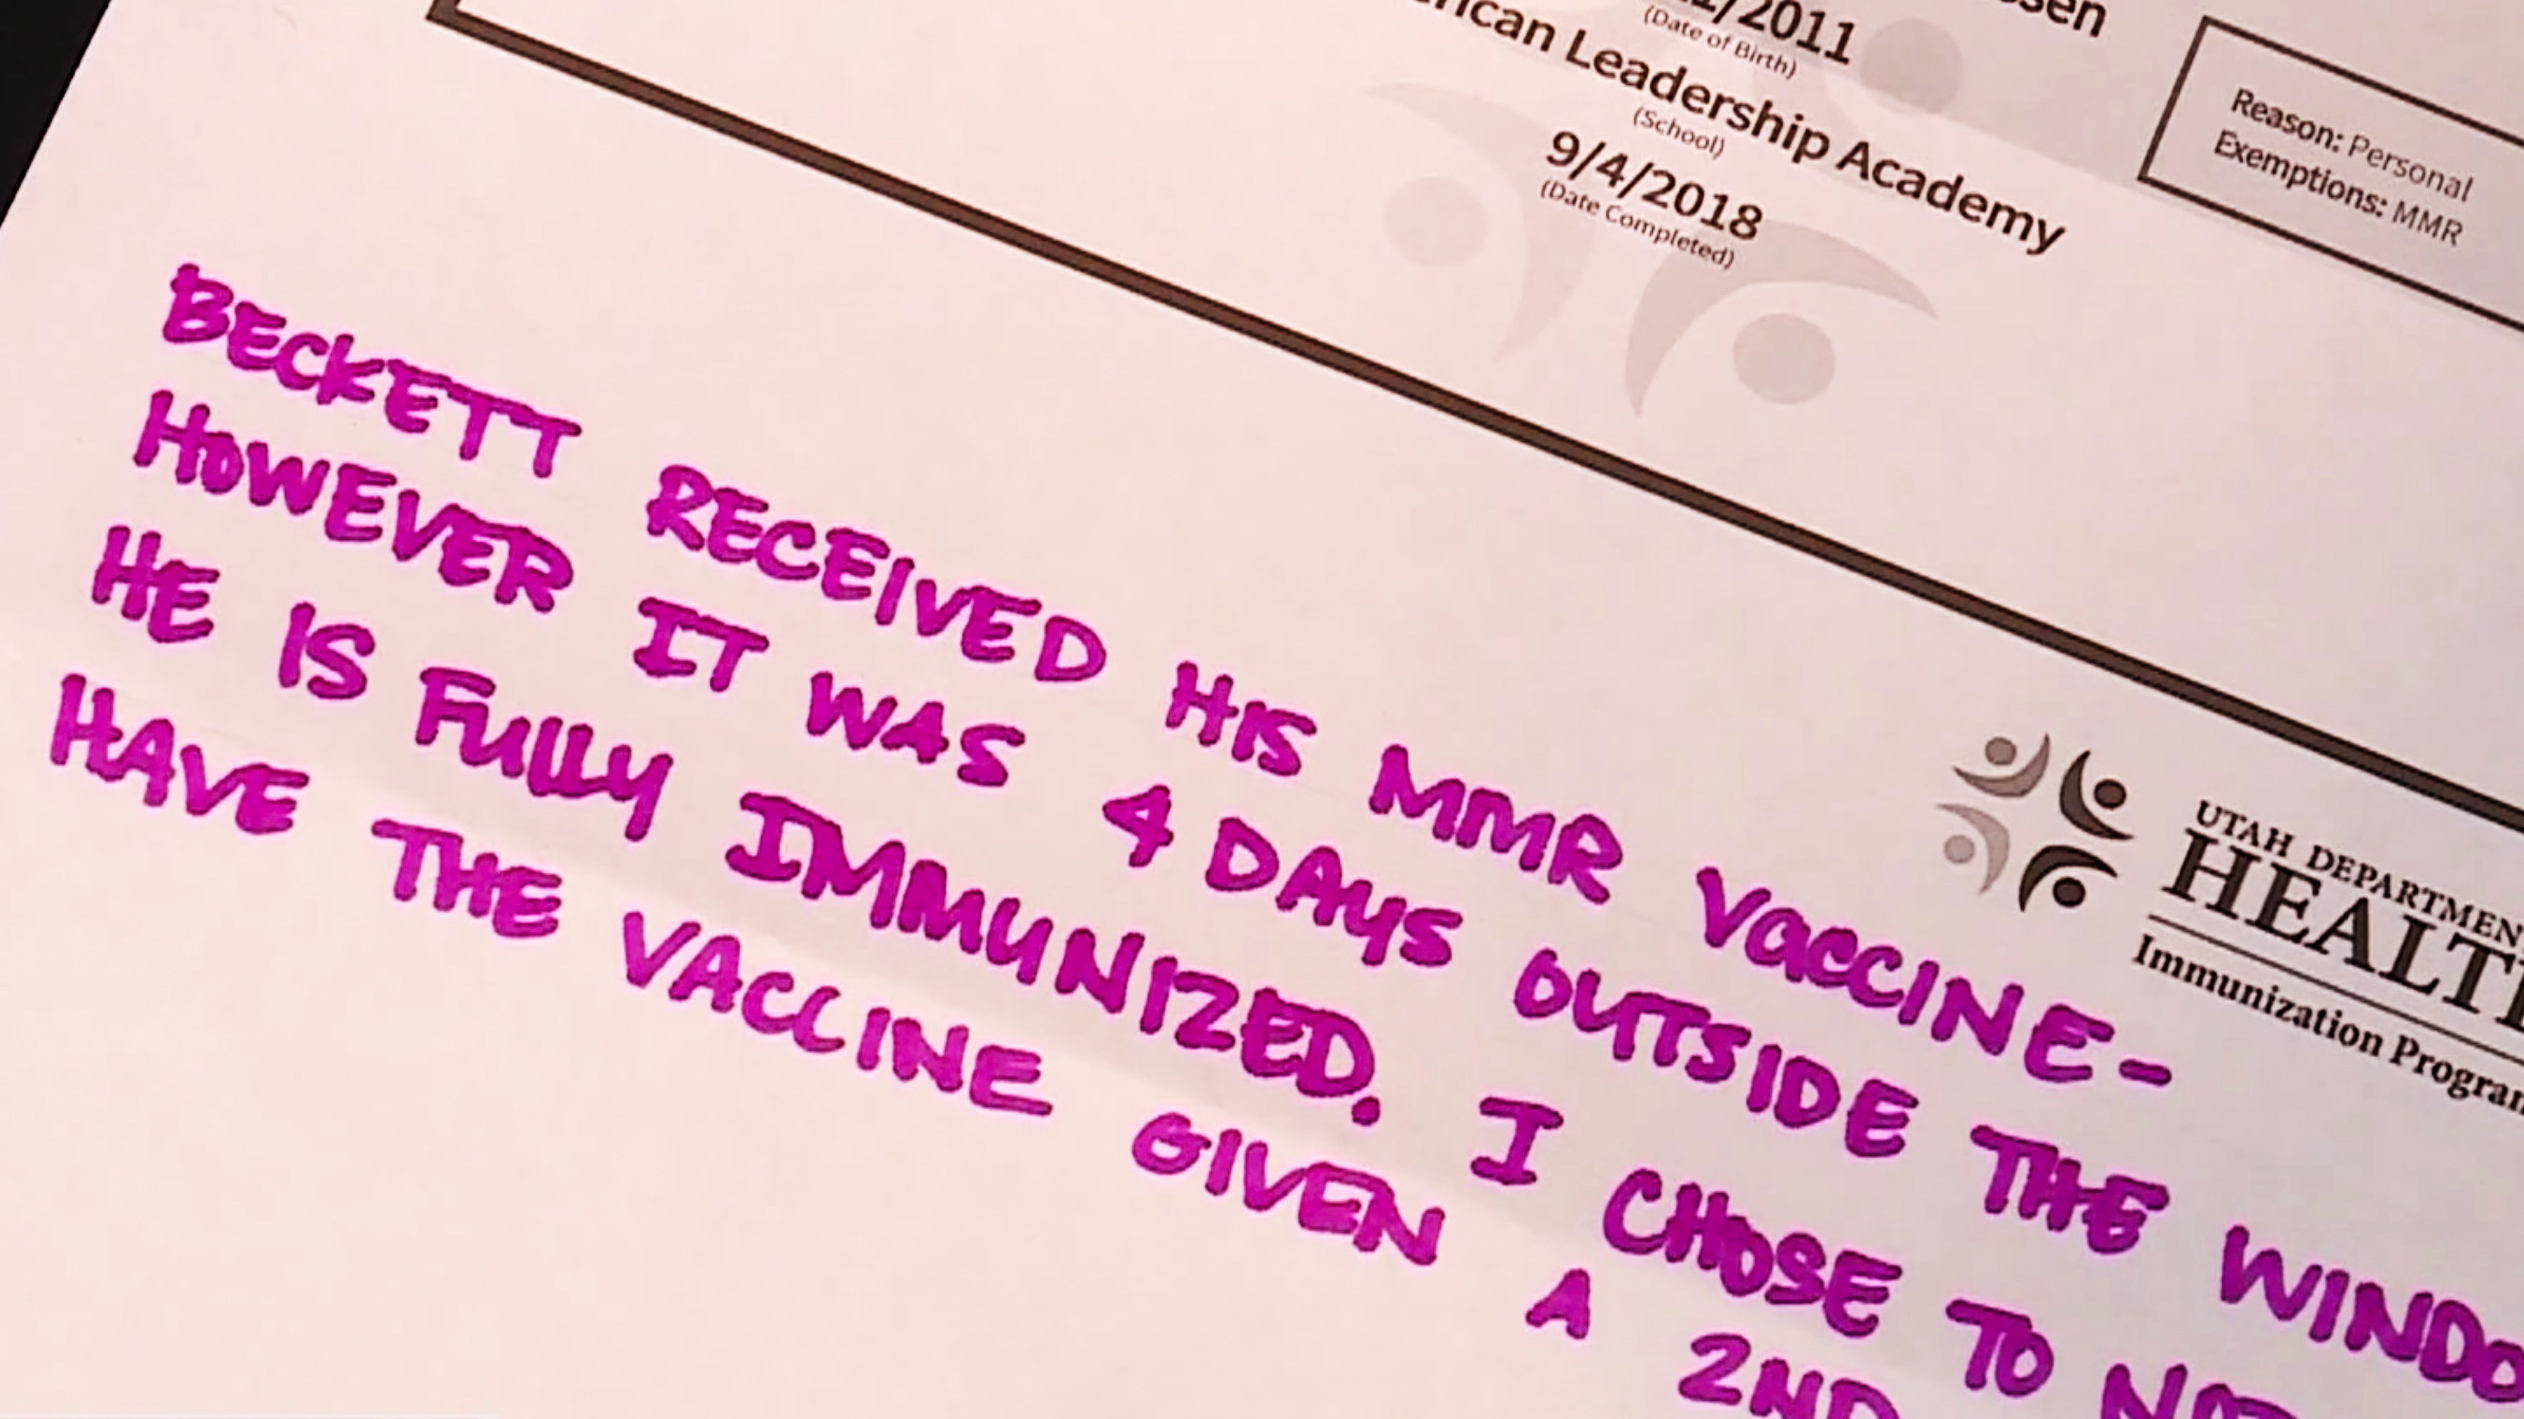 /2011
(Date of Birth)
Leadership Academy
(School)
9/4/2018
(Date Completed)
Reason: Personal
Exemptions: MMR
BECKETT RECEIVED HIS MMR VACCINE-
HOWEVER IT WAS 4 DAYS OUTSIDE THE
HE IS FULLY IMMUNIZED. I CHOSE TO
HAVE THE VACCINE GIVEN A 2ND
UTAH
HEALTH
Immunization